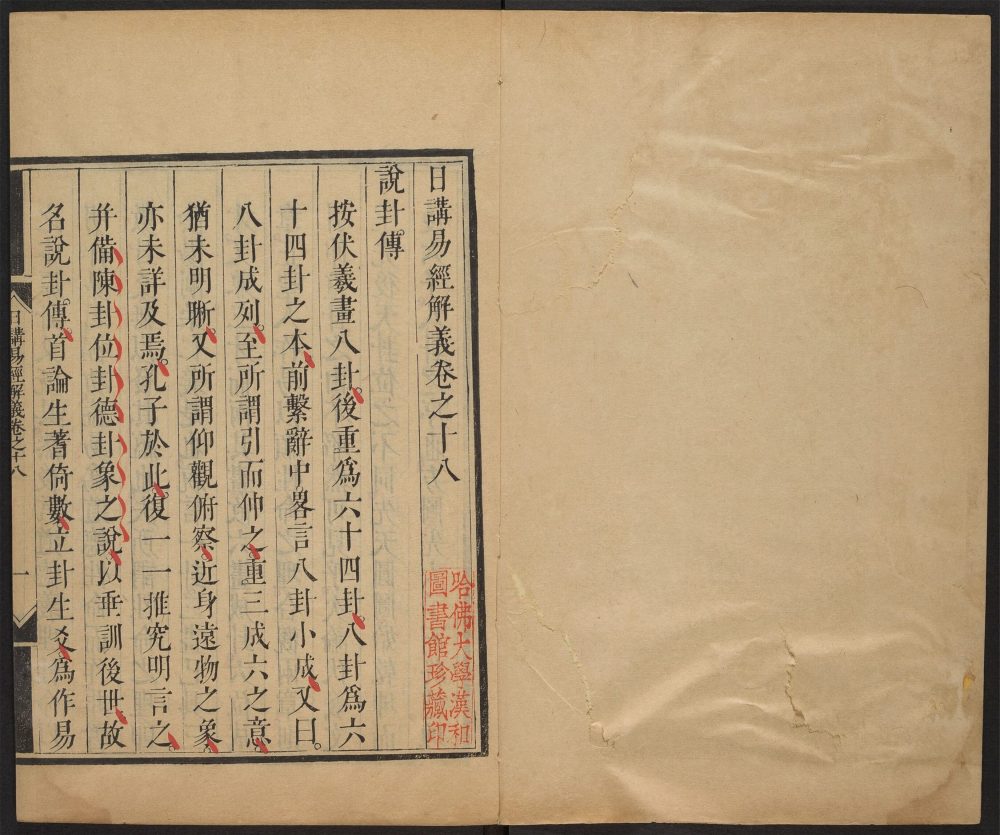 日講易經解義卷之十八
說卦傳
按伏羲畫八卦後重爲六十四卦八卦爲六
十四卦之本前繫辭中畧言八卦小成又曰
八卦成列至所謂引而伸之重三成六之意
猶未明晰又所謂仰觀俯察近身遠物之象
亦未詳及焉孔子於此復一一推究明言之
并備陳卦位卦德卦象之說以垂訓後世故
名說卦傳首論生蓍倚數立卦生爻爲作易
日講易經解義卷之十八
一
哈佛大學漢和
圖書館珍藏印